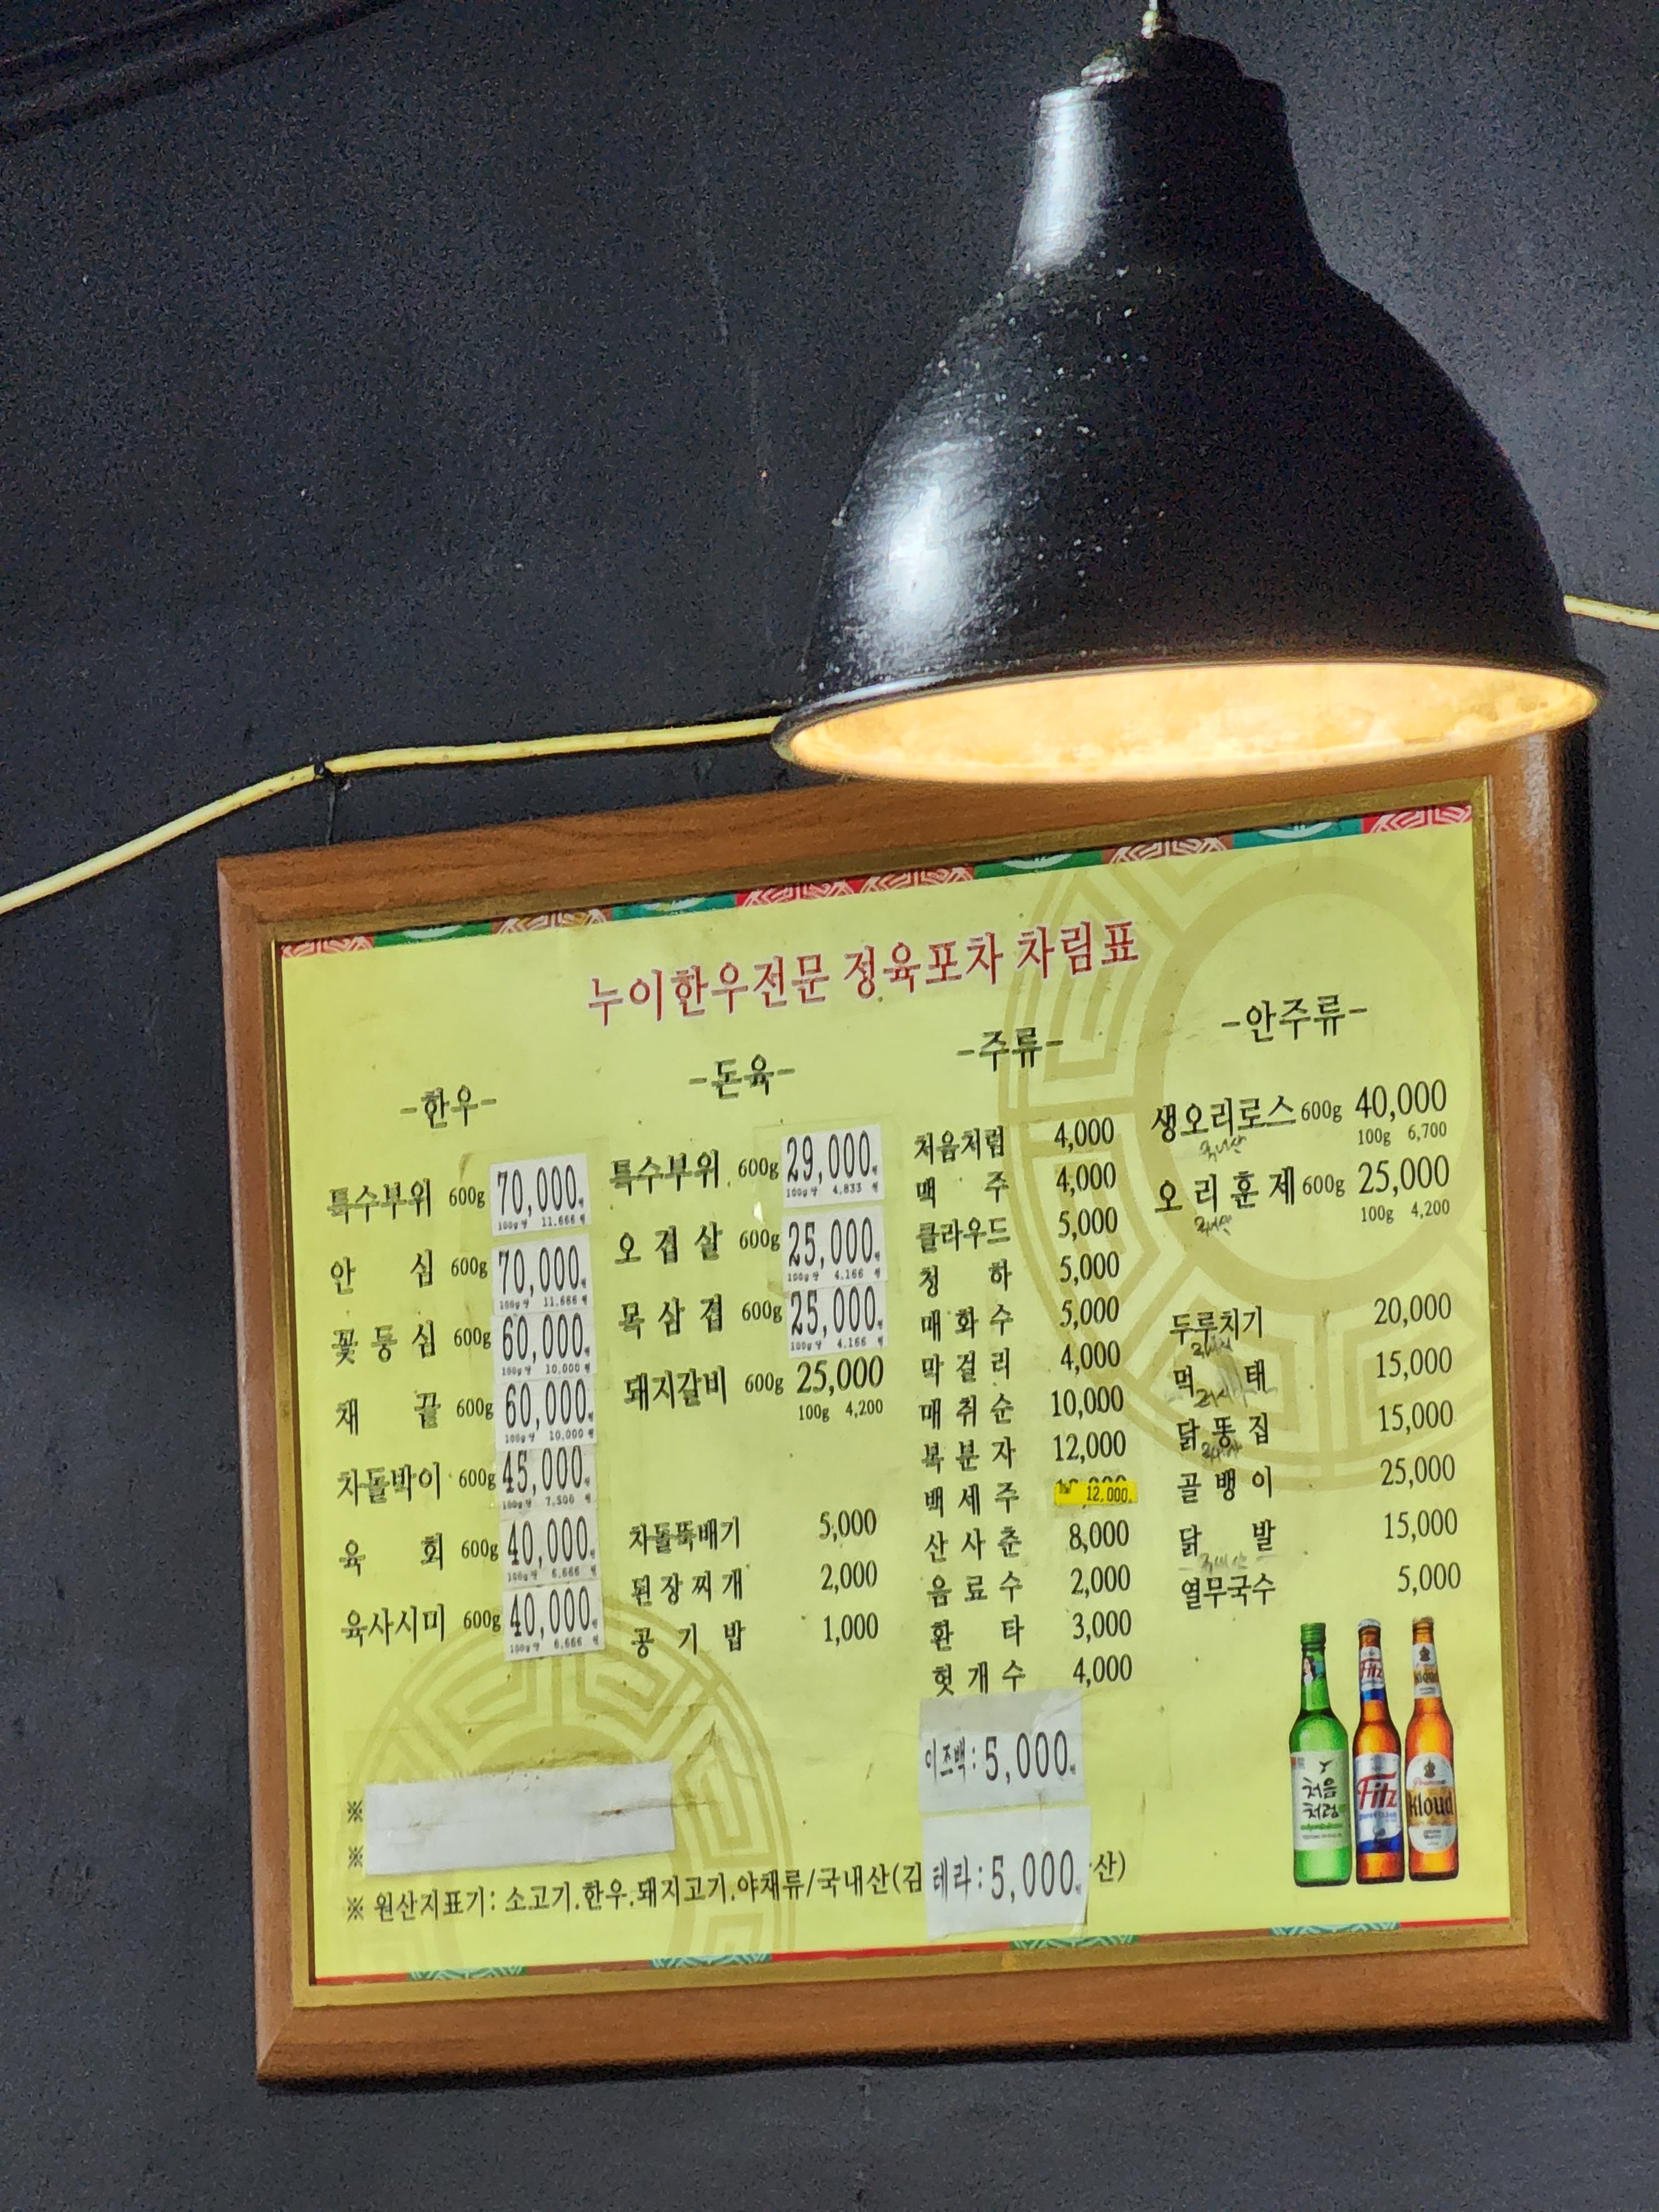 누이한우전문 정육포차 차림표
-한우-
특수부위 600g 70,000
100g당 11.666
안 심 600g 70,000
100g당 11.666
꽃등심 600g 60,000
100g당 10.000
채 끝 600g 60,000
100g당 10.000
차돌박이 600g 45,000
100g당 7.500
육 회 600g 40,000
100g당 6.666
육사시미 600g 40,000
100g당 6.666
-돈육-
특수부위 600g 29,000
100g당 4.833
오겹살 600g 25,000
100g당 4.166
목삼겹 600g 25,000
100g당 4.166
돼지갈비 600g 25,000
100g 4,200
차돌뚝배기 5,000
된장찌개 2,000
공기밥 1,000
-주류-
처음처럼 4,000
맥 주 4,000
클라우드 5,000
청 하 5,000
매화수 5,000
막걸리 4,000
매취순 10,000
복분자 12,000
백세주 12,000
산사춘 8,000
음료수 2,000
환 타 3,000
헛개수 4,000
이즈백:5,000
테라:5,000
-안주류-
생오리로스 600g 40,000
국내산
100g 6,700
오리훈제 600g 25,000
100g 4,200
두루치기 20,000
먹 태 15,000
닭똥집 15,000
골뱅이 25,000
닭 발 15,000
열무국수 5,000
처음
처럼
Fitz
Kloud
※
※
※ 원산지표기: 소고기.한우.돼지고기.야채류/국내산(김 산)